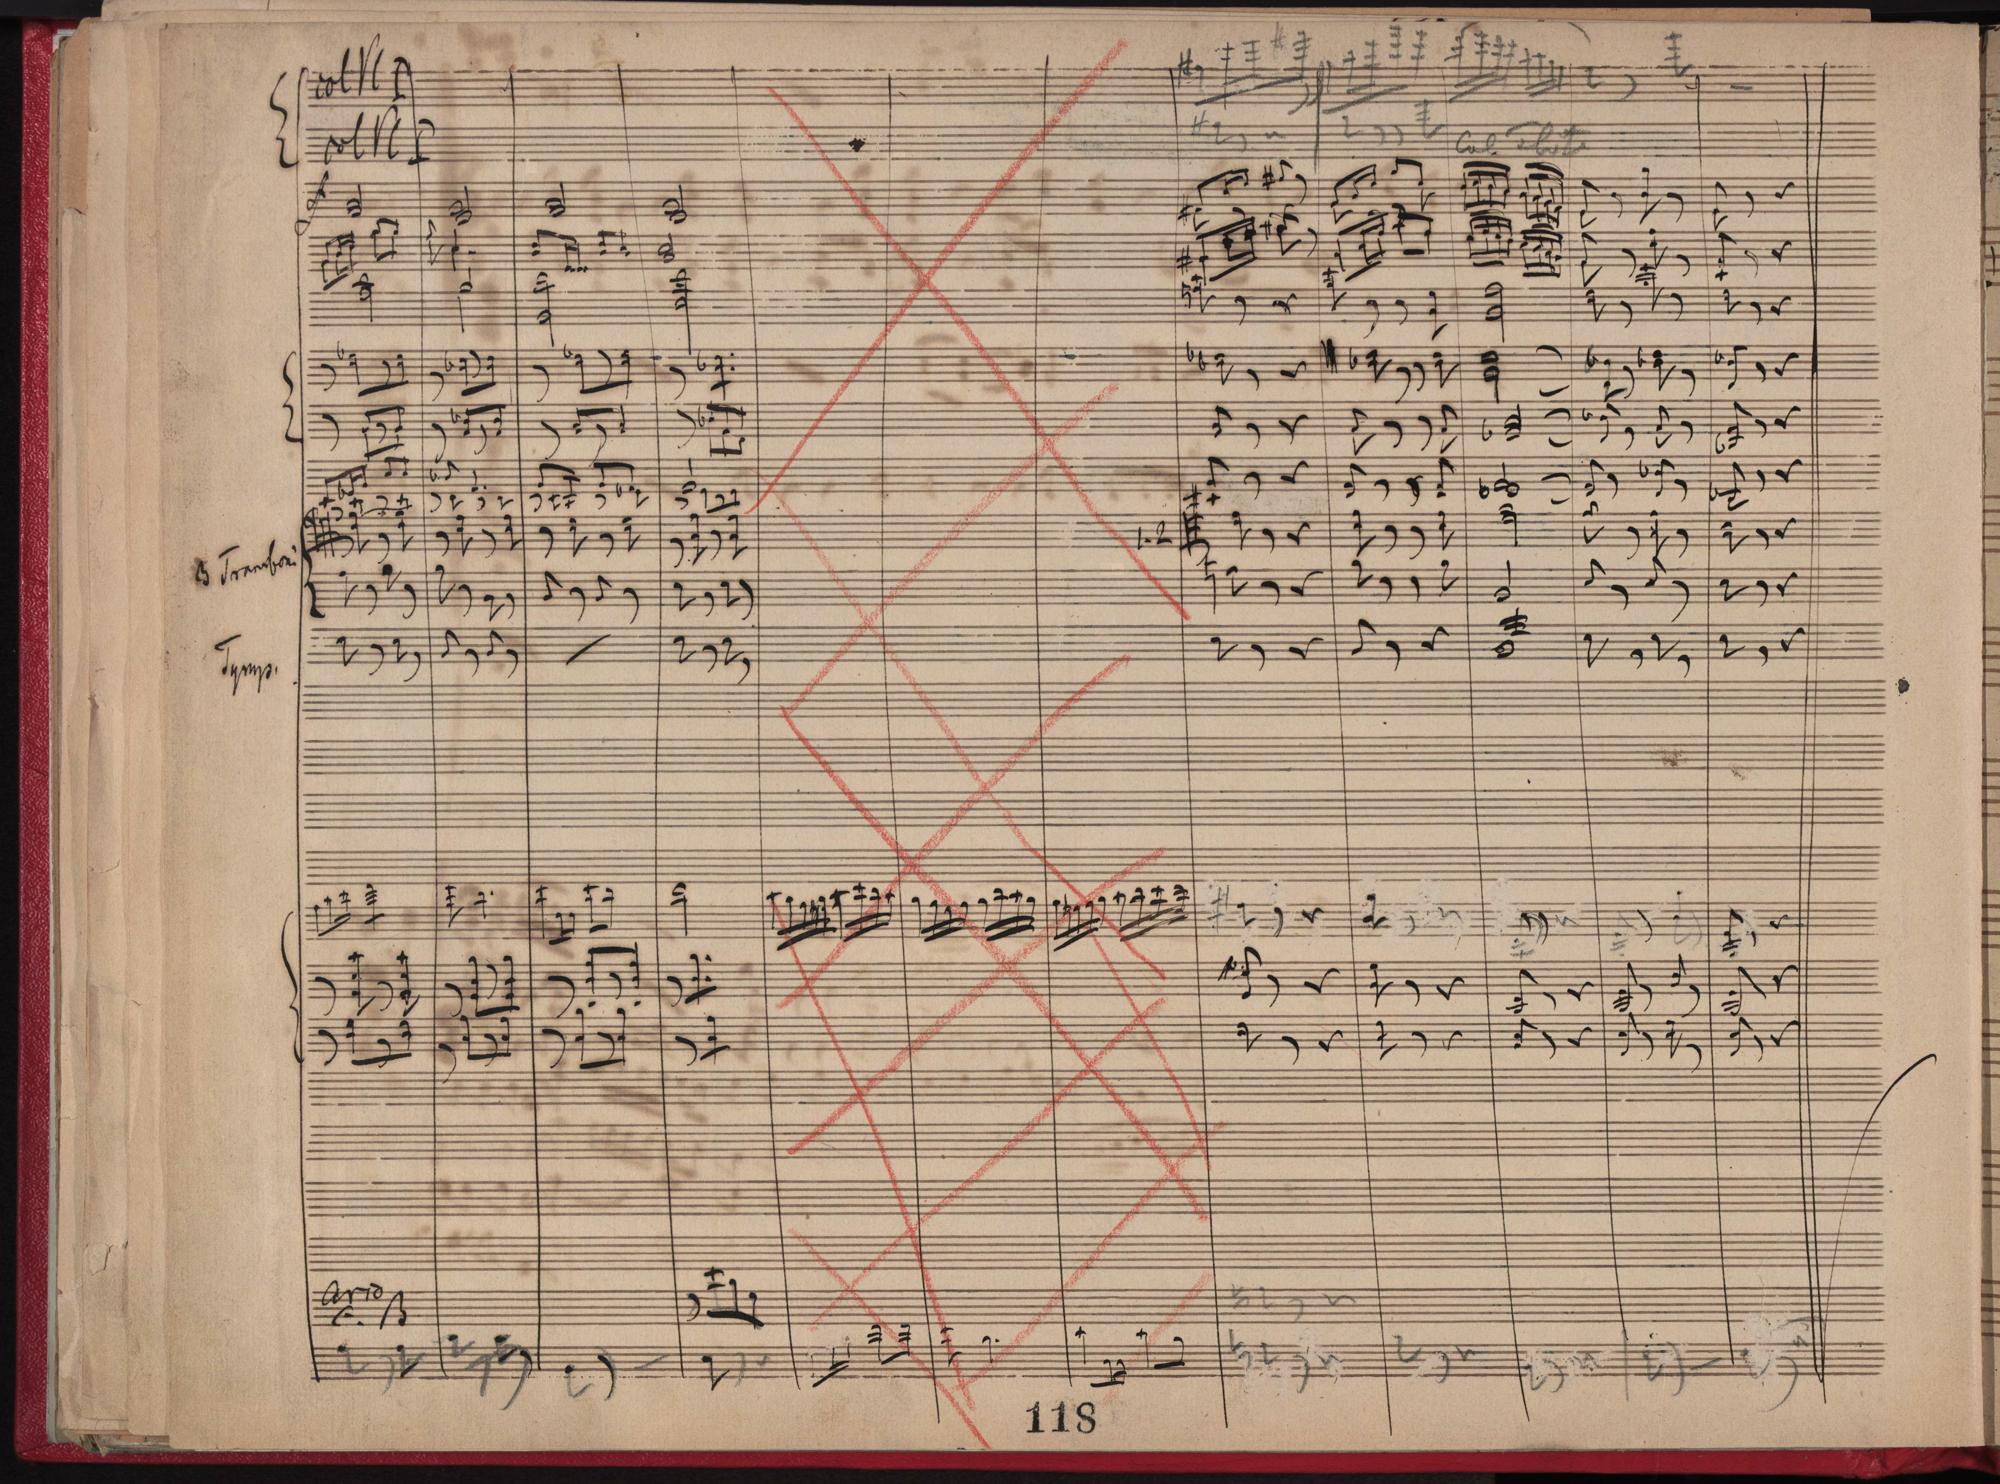 col Vl I
col Vl I
Col Flute
f
3 Tromboni
1. 2
Tymp.
arco
C. B
118